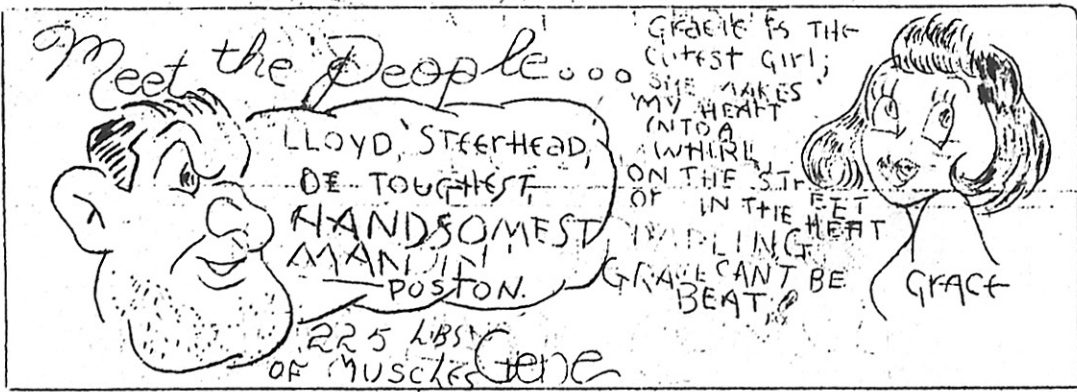 Meet the People...
LLOYD, STEERHEAD,
DE TOUGHEST,
HANDSOMEST
MAN IN
POSTON.
225 LBS
OF MUSCLES
Gene
GRACIE IS THE
CUTEST GIRL;
SHE MAKES
MY HEART
INTO A
WHIRL
ON THE STREET
OR IN THE HEAT
DARLING
GRACIE CANT BE
BEAT!
GRACE